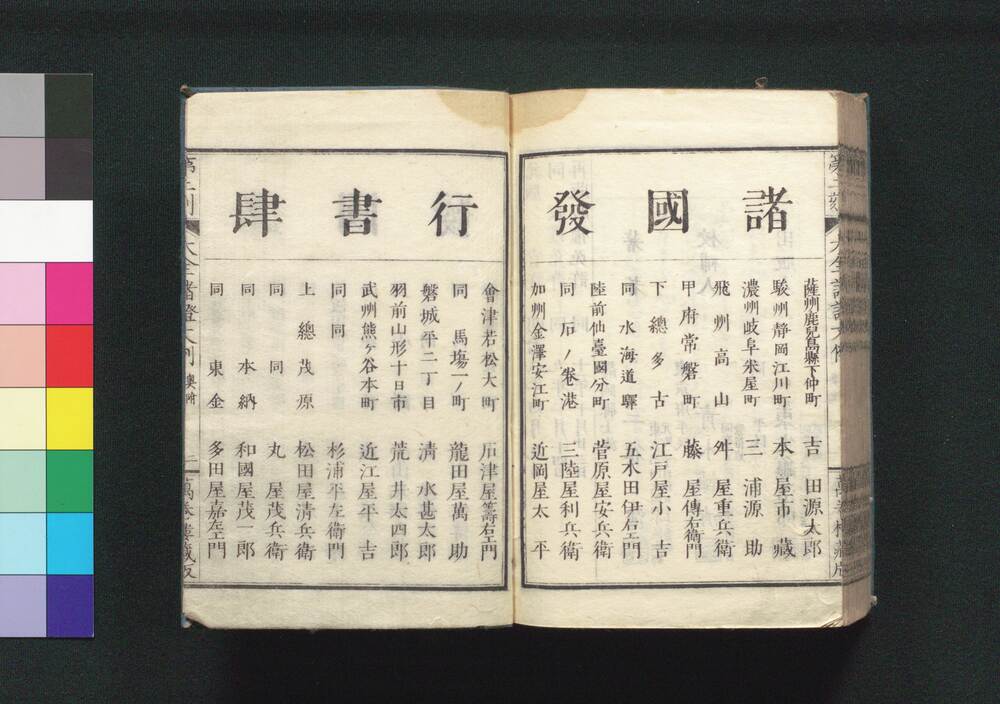 諸國發行書肆
薩州鹿兒島縣下仲町 吉田源太郎
駿州靜岡江川町 本屋市藏
濃州岐阜米屋町 三浦源助
飛州高山 舛屋重兵衛
甲府常磐町 藤屋傳右衛門
下總多古 江戸屋小吉
同水海道驛 五木田伊右エ門
陸前仙臺國分町 菅原屋安兵衛
同石ノ巻港 三陸屋利兵衛
加州金澤安江町 近岡屋太平
會津若松大町 石津屋籌右エ門
同馬塲一ノ町 龍田屋萬助
磐城平二丁目 清水甚太郎
羽前山形十日市 荒井太四郎
武州熊ヶ谷本町 近江屋平吉
同同 杉浦平左衛門
上總茂原 松田屋清兵衛
同同 丸屋茂兵衛
同本納 和國屋茂一郎
同東金 多田屋嘉左エ門